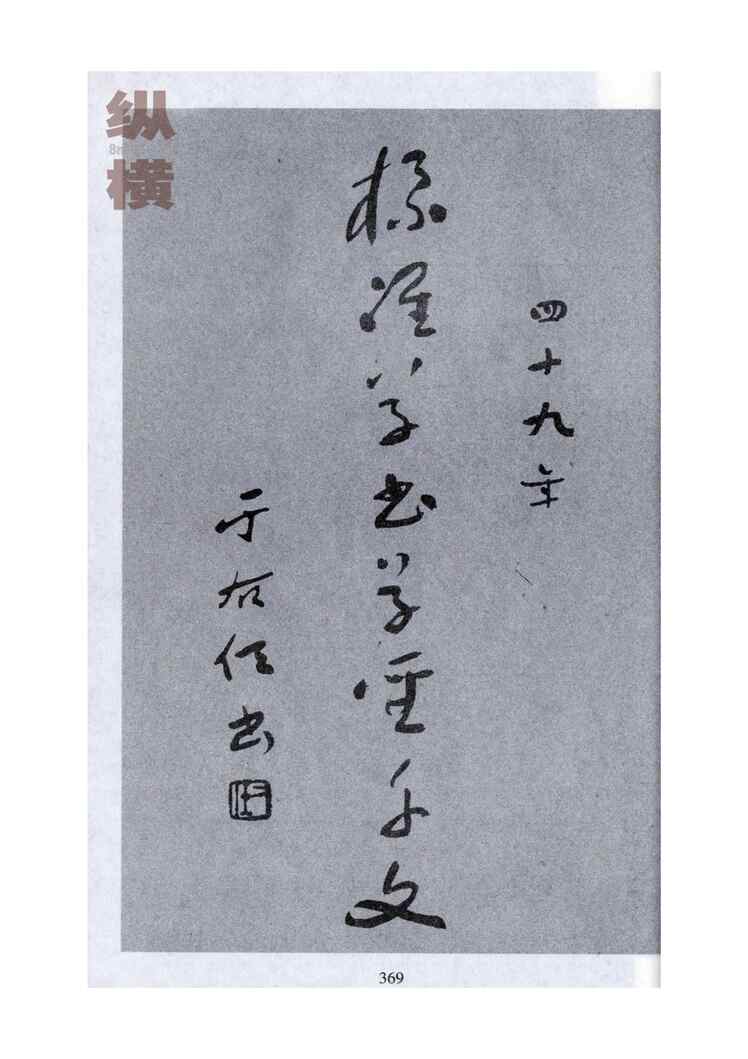 四十九年
標準草書草聖千文
于右任書
右任
纵横
369